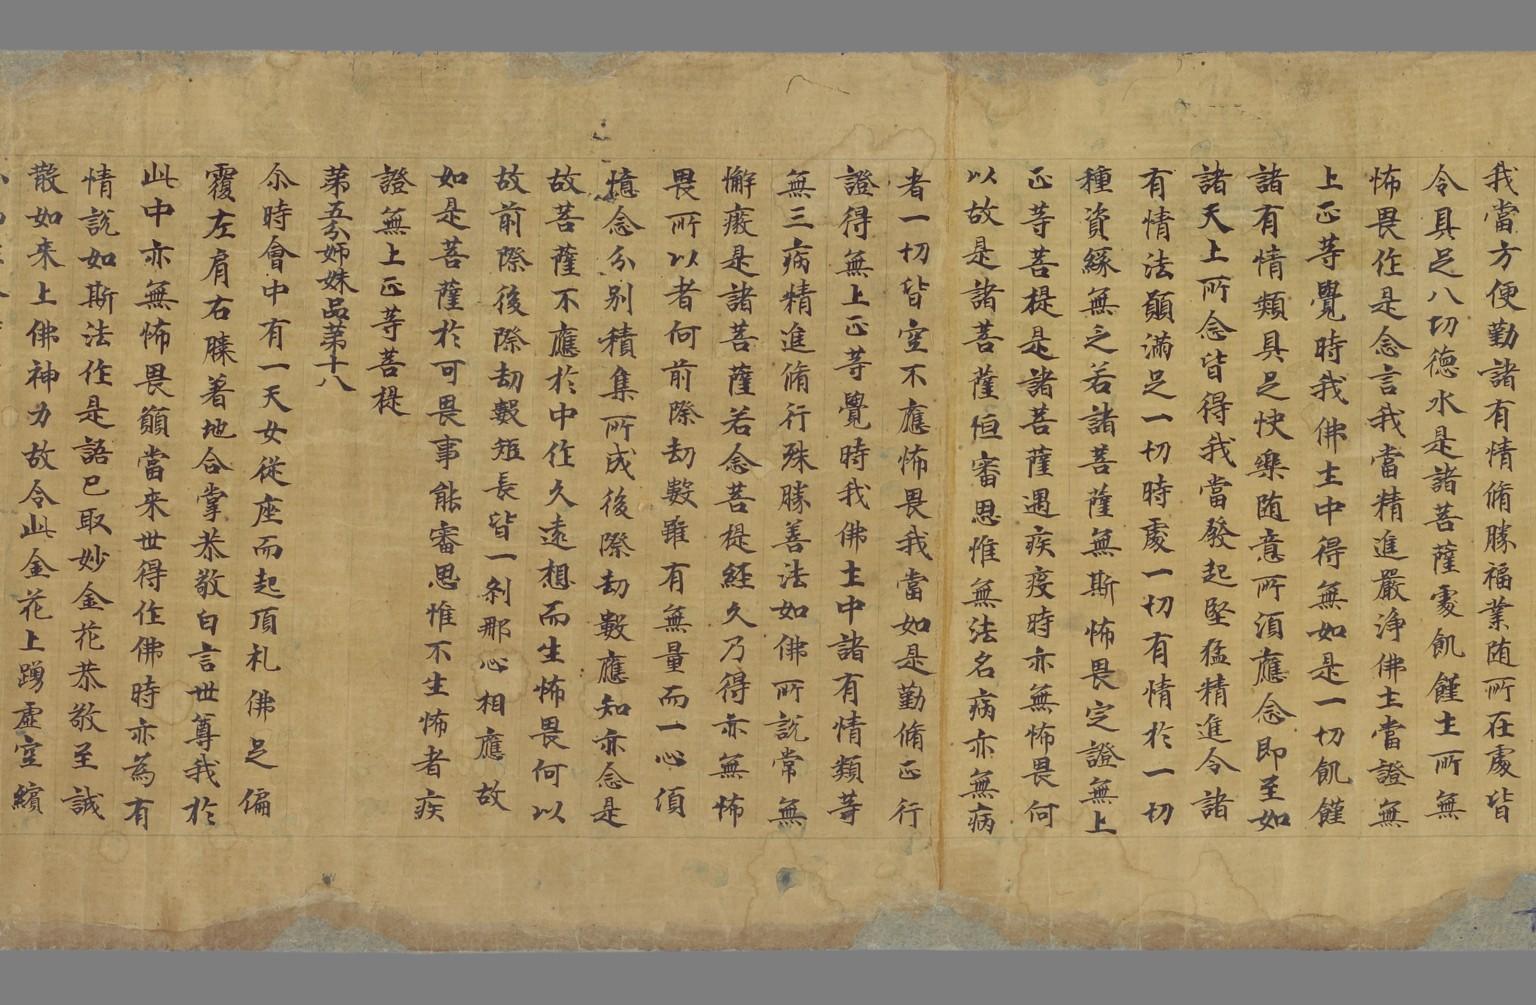 我當方便勤諸有情脩勝福業随所在處皆
令具足八切德水是諸菩薩處飢饉土所無
怖畏作是念言我當精進嚴淨佛土當證無
上正等覺時我佛土中得無如是一切飢饉
諸有情類具足快樂随意所須應念即至如
諸天上所念皆得我當發起堅猛精進令諸
有情法願滿足一切時處一切有情於一切
種資緣無乏若諸菩薩無斯怖畏定證無上
正等菩提是諸菩薩遇疾疫時亦無怖畏何
以故是諸菩薩恒審思惟無法名病亦無病
者一切皆空不應怖畏我當如是勤脩正行
證得無上正等覺時我佛土中諸有情類等
無三病精進脩行殊勝善法如佛所說常無
懈癈是諸菩薩若念菩提經久乃得亦無怖
畏所以者何前際劫數雖有無量而一心須
憶念分别積集所成後際劫數應知亦念是
故菩薩不應於中作久遠想而生怖畏何以
故前際後際劫數短長皆一剎那心相應故
如是菩薩於可畏事能審思惟不生怖者疾
證無上正等菩提
第五分姊妹品第十八
尒時會中有一天女從座而起頂礼佛足偏
覆左肩右膝著地合掌恭敬白言世尊我於
此中亦無怖畏願當来世得作佛時亦為有
情說如斯法作是語已取妙金花恭敬至誠
散如来上佛神力故令此金花上踊虛空繽